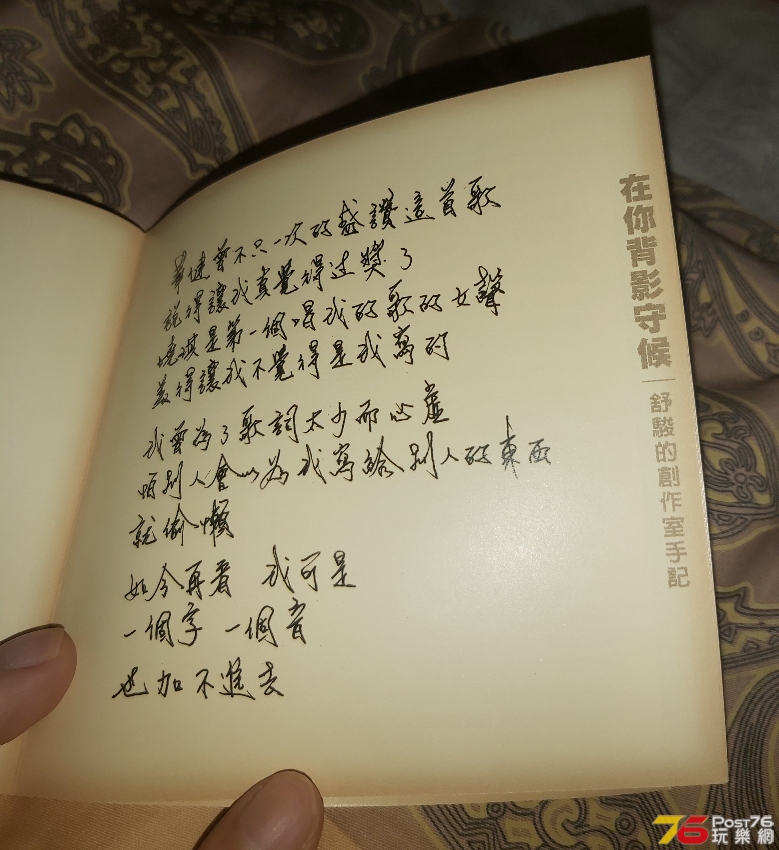 在你背影守候
舒駿的創作室手記
畢健曾不只一次的盛讚這首歌
說得讓我真覺得過獎了
曉琪是第一個唱我的歌的女聲
美得讓我不覺得是我寫的
我曾為了歌詞太少而心虛
怕別人會以為我寫給別人的東西
就偷懶
如今再看 我可是
一個字 一個音
也加不進去
76 Post76
玩樂網